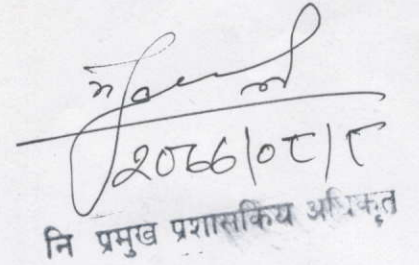 २०७७|०८|८
नि प्रमुख प्रशासकिय अधिकृत